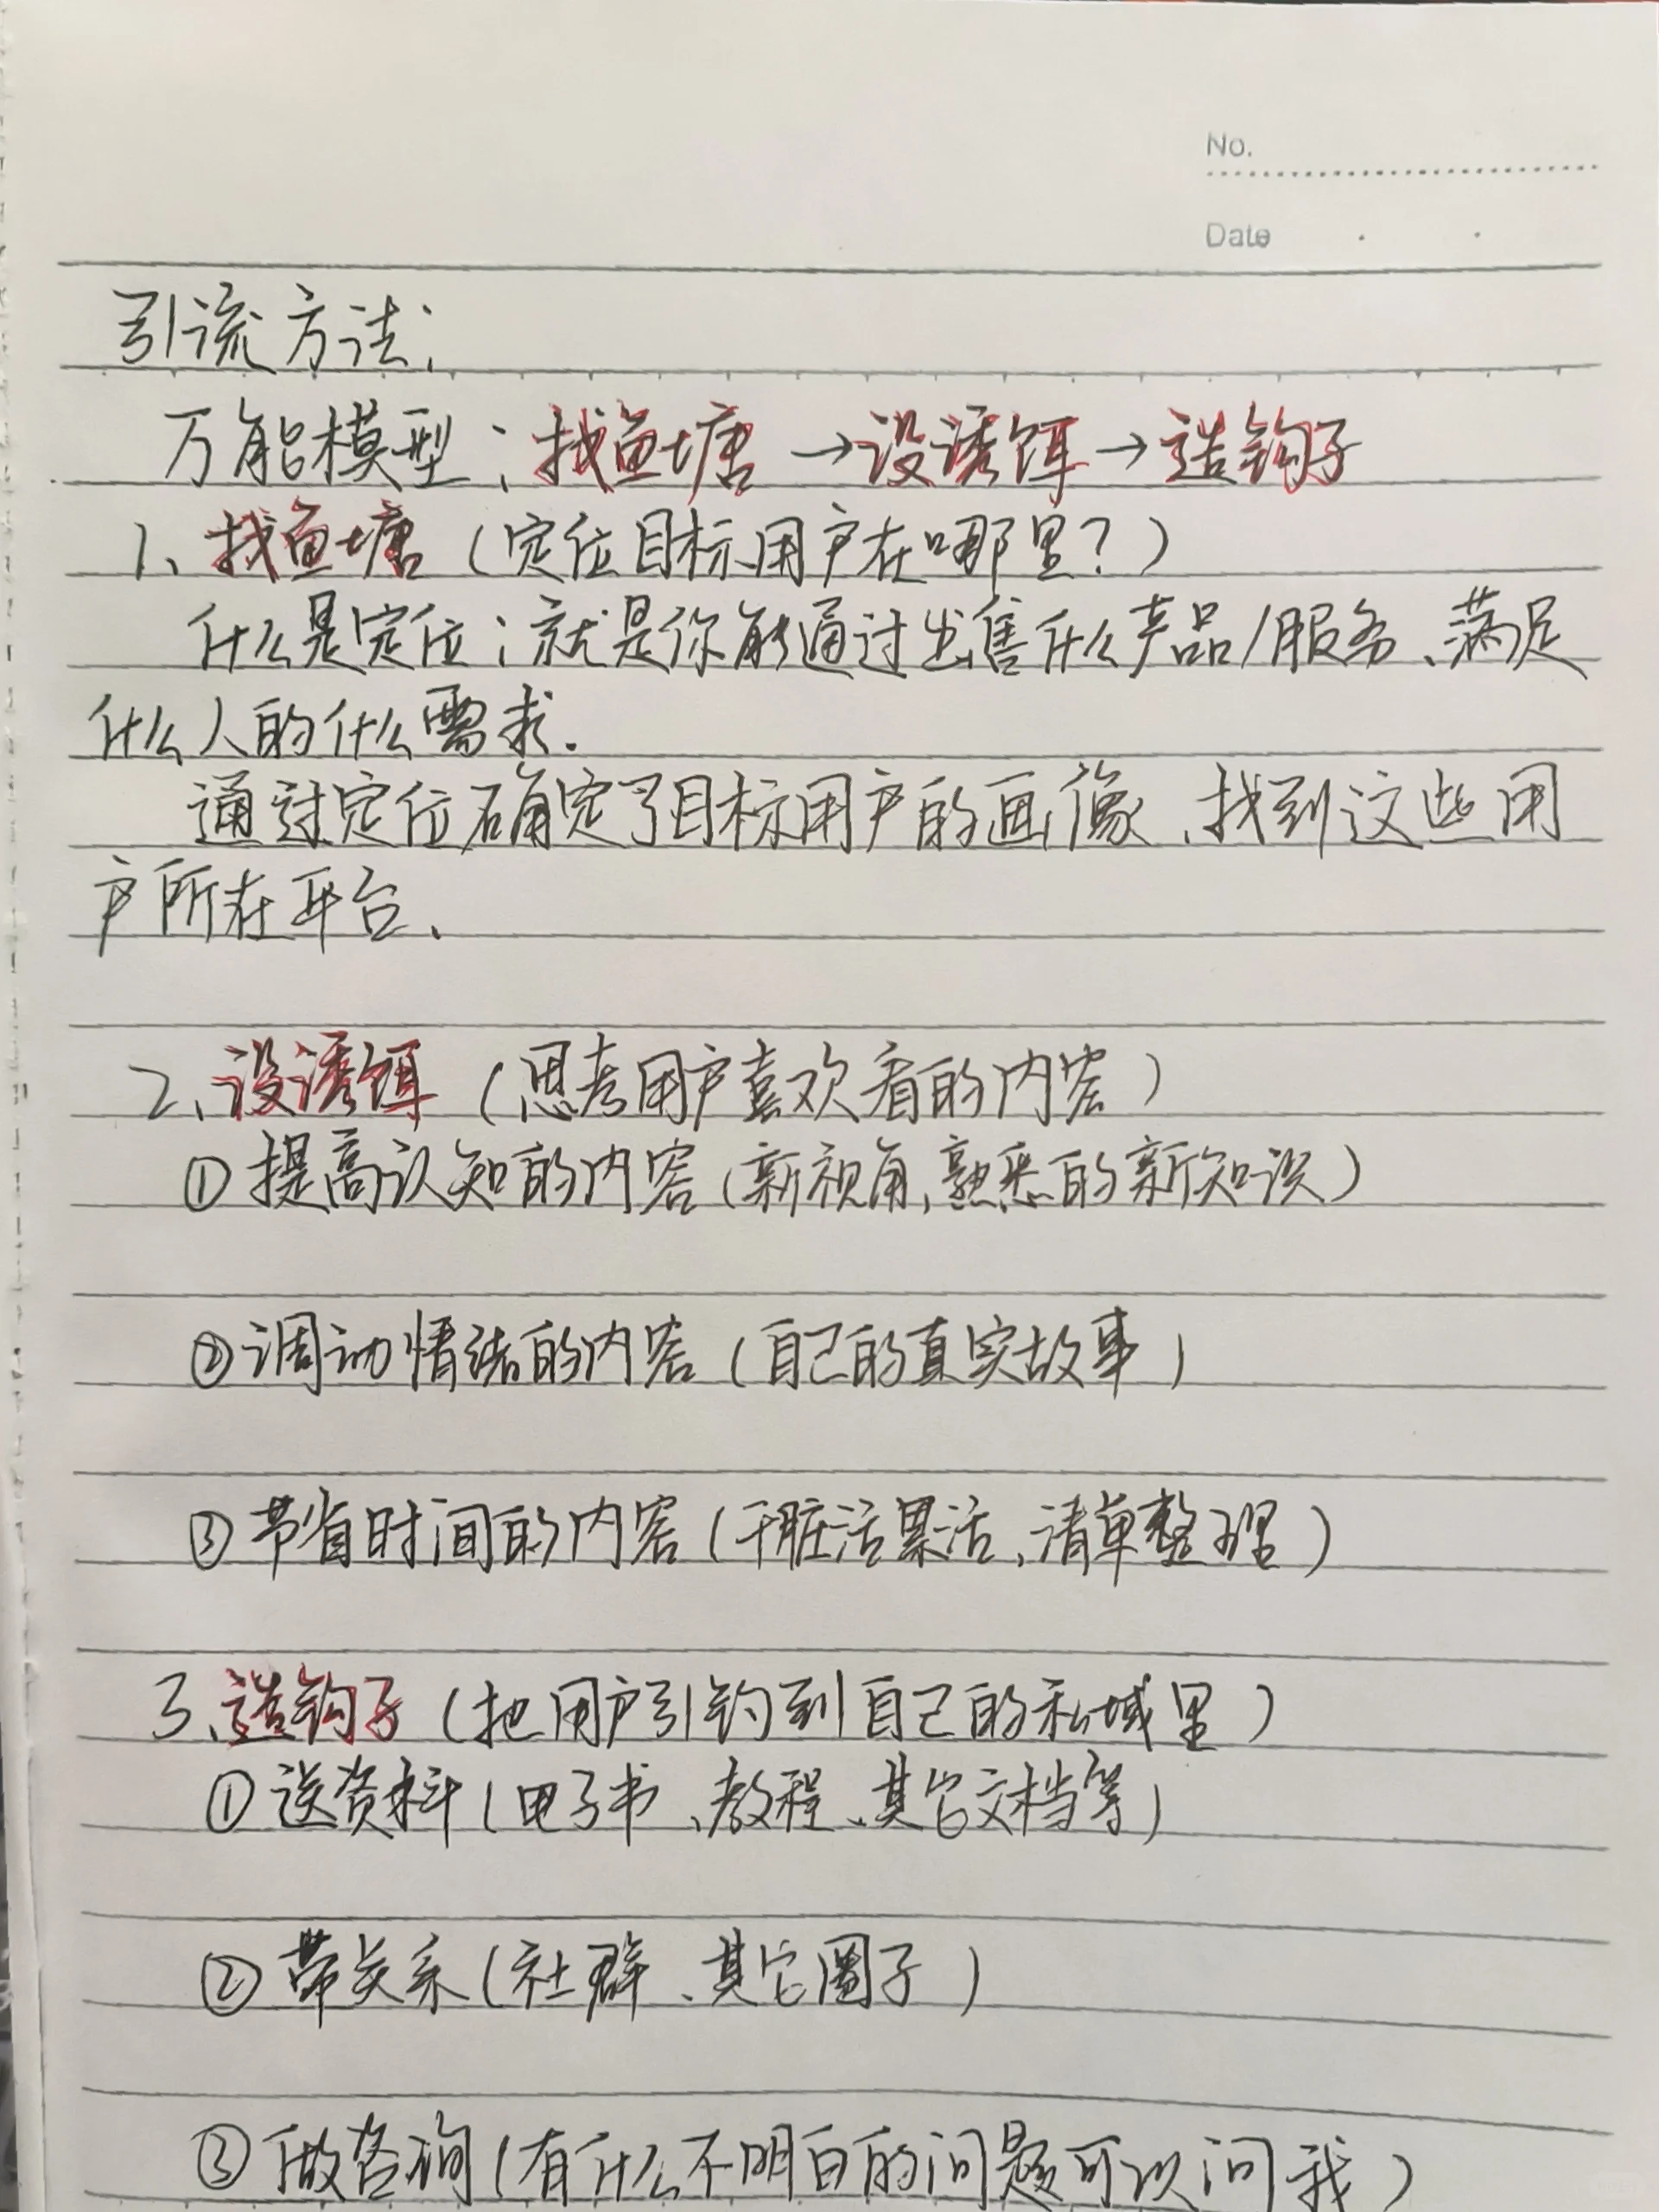 No.
Date
引流方法:
万能模型:找鱼塘→设诱饵→造钩子
1、找鱼塘(定位目标用户在哪里?)
什么是定位:就是你能通过出售什么产品/服务、满足
什么人的什么需求.
通过定位确定了目标用户的画像、找到这些用
户所在平台、
2、设诱饵(思考用户喜欢看的内容)
①提高认知的内容(新视角,熟悉的新知识)
②调动情绪的内容(自己的真实故事)
③节省时间的内容(干脏活累活、清单整理)
3、造钩子(把用户引钓到自己的私域里)
①送资料(电子书、教程、其它文档等)
②带关系(社群、其它圈子)
③做咨询(有什么不明白的问题可以问我)